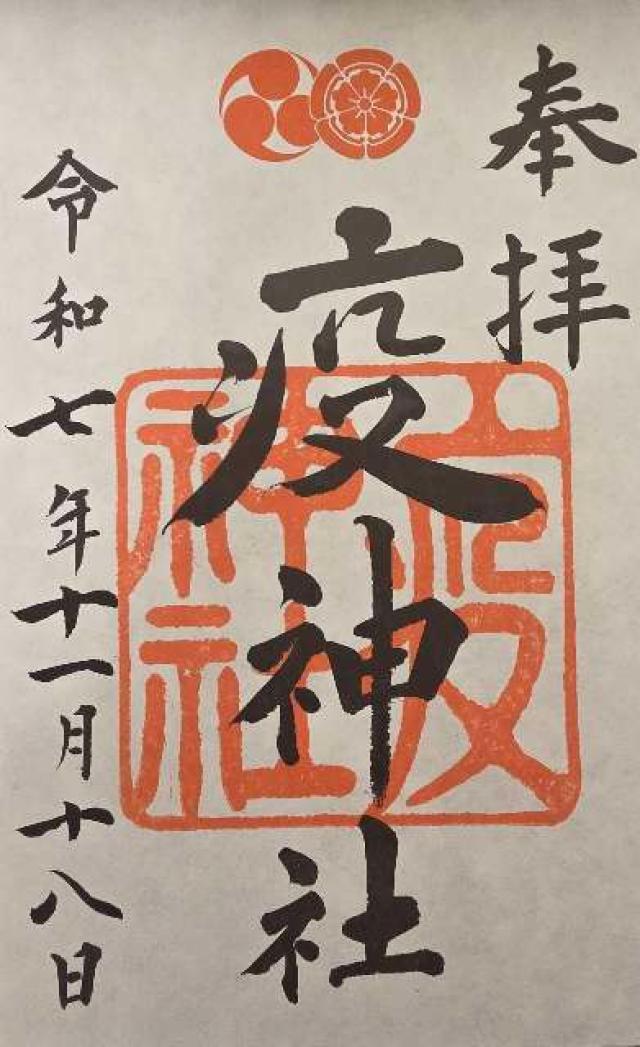 奉拝
疫神社
疫神社
令和七年十一月十八日